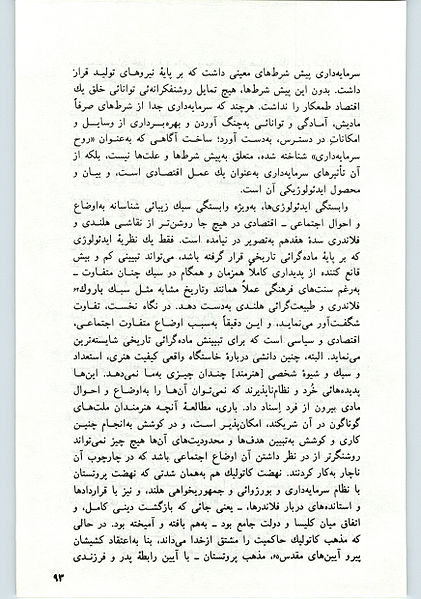 سرمایه‌داری پیش شرط‌های معینی داشت که بر پایهٔ نیروهای تولید قرار
داشت. بدون این پیش شرط‌ها، هیچ تمایل روشنفکرانه‌ئی توانائی خلق یك
اقتصاد طمعکار را نداشت. هرچند که سرمایه‌داری جدا از شرط‌های صرفاً
مادیش، آمادگی و توانائی به‌چنگ آوردن و بهره‌برداری از وسایل و
امکاناتِ در دسترس، به‌دست آورد؛ ساخت آگاهی که به‌عنوان «روح
سرمایه‌داری» شناخته شده، متعلق به‌پیش شرط‌ها و علت‌ها نیست، بلکه از
آن تأثیرهای سرمایه‌داری به‌عنوان یك عمل اقتصادی است، و بیان و
محصول ایدئولوژیکی آن است.
وابستگی ایدئولوژی‌ها، به‌ویژه وابستگی سبك زیبائی شناسانه به‌اوضاع
و احوال اجتماعی ـ اقتصادی در هیچ جا روشن‌تر از نقاشی هلندی و
فلاندری سدهٔ هفدهم به‌تصویر در نیامده است. فقط یك نظریهٔ ایدئولوژی
که بر پایهٔ ماده‌گرائی تاریخی قرار گرفته باشد، می‌تواند تبیینی کم و بیش
قانع کننده از پدیداری کاملاً همزمان و همگام دو سبك چنان متفاوت ـ
به‌رغم سنت‌های فرهنگی عملاً همانند وتاریخ مشابه مثل سبك باروك
فلاندری و طبیعت‌گرائی هلندی به‌دست دهد. در نگاه نخست، تفاوت
شگفت‌آور می‌نماید، و این دقیقاً به‌سبب اوضاع متفاوت اجتماعی،
اقتصادی و سیاسی است که برای تبیینش ماده‌گرائی تاریخی شایسته‌ترین
می‌نماید. البته، چنین دانشی دربارهٔ خاستگاه واقعی کیفیت هنری، استعداد
و سبك و شیوهٔ شخصی [هنرمند] چندان چیزی به‌ما نمی‌دهد. این‌ها
پدیده‌هائی خُرد و نظام‌ناپذیرند که نمی‌توان آن‌ها را به‌اوضاع و احوال
مادی بیرون از فرد اِسناد داد. باری، مطالعهٔ آنچه هنرمندان ملت‌های
گوناگون در آن شریکند، امکان‌پذیر است، و در کوشش به‌انجام چنین
کاری و کوشش به‌تبیین هدف‌ها و محدودیت‌های آن‌ها هیچ چیز نمی‌تواند
روشنگرتر از در نظر داشتن آن اوضاع اجتماعی باشد که در چارچوب آن
ناچار به‌کار کردنند. نهضت کاتولیك هم به‌همان شدتی که نهضت پروتستان
با نظام سرمایه‌داری و بورژوائی و جمهوریخواهی هلند، و نیز با قراردادها
و استانده‌های دربار فلاندرها، ـ یعنی جائی که بازگشت دینی کامل، و
اتفاق میان کلیسا و دولت جامع بود ـ به‌هم بافته و آمیخته بود. در حالی
که مذهب کاتولیك حاکمیت را مشتق ازخدا می‌داند، بنا به‌اعتقاد کشیشان
پیرو آیین‌های مقدس، مذهب پروتستان ـ با آیین رابطهٔ پدر و فرزندی
۹۳